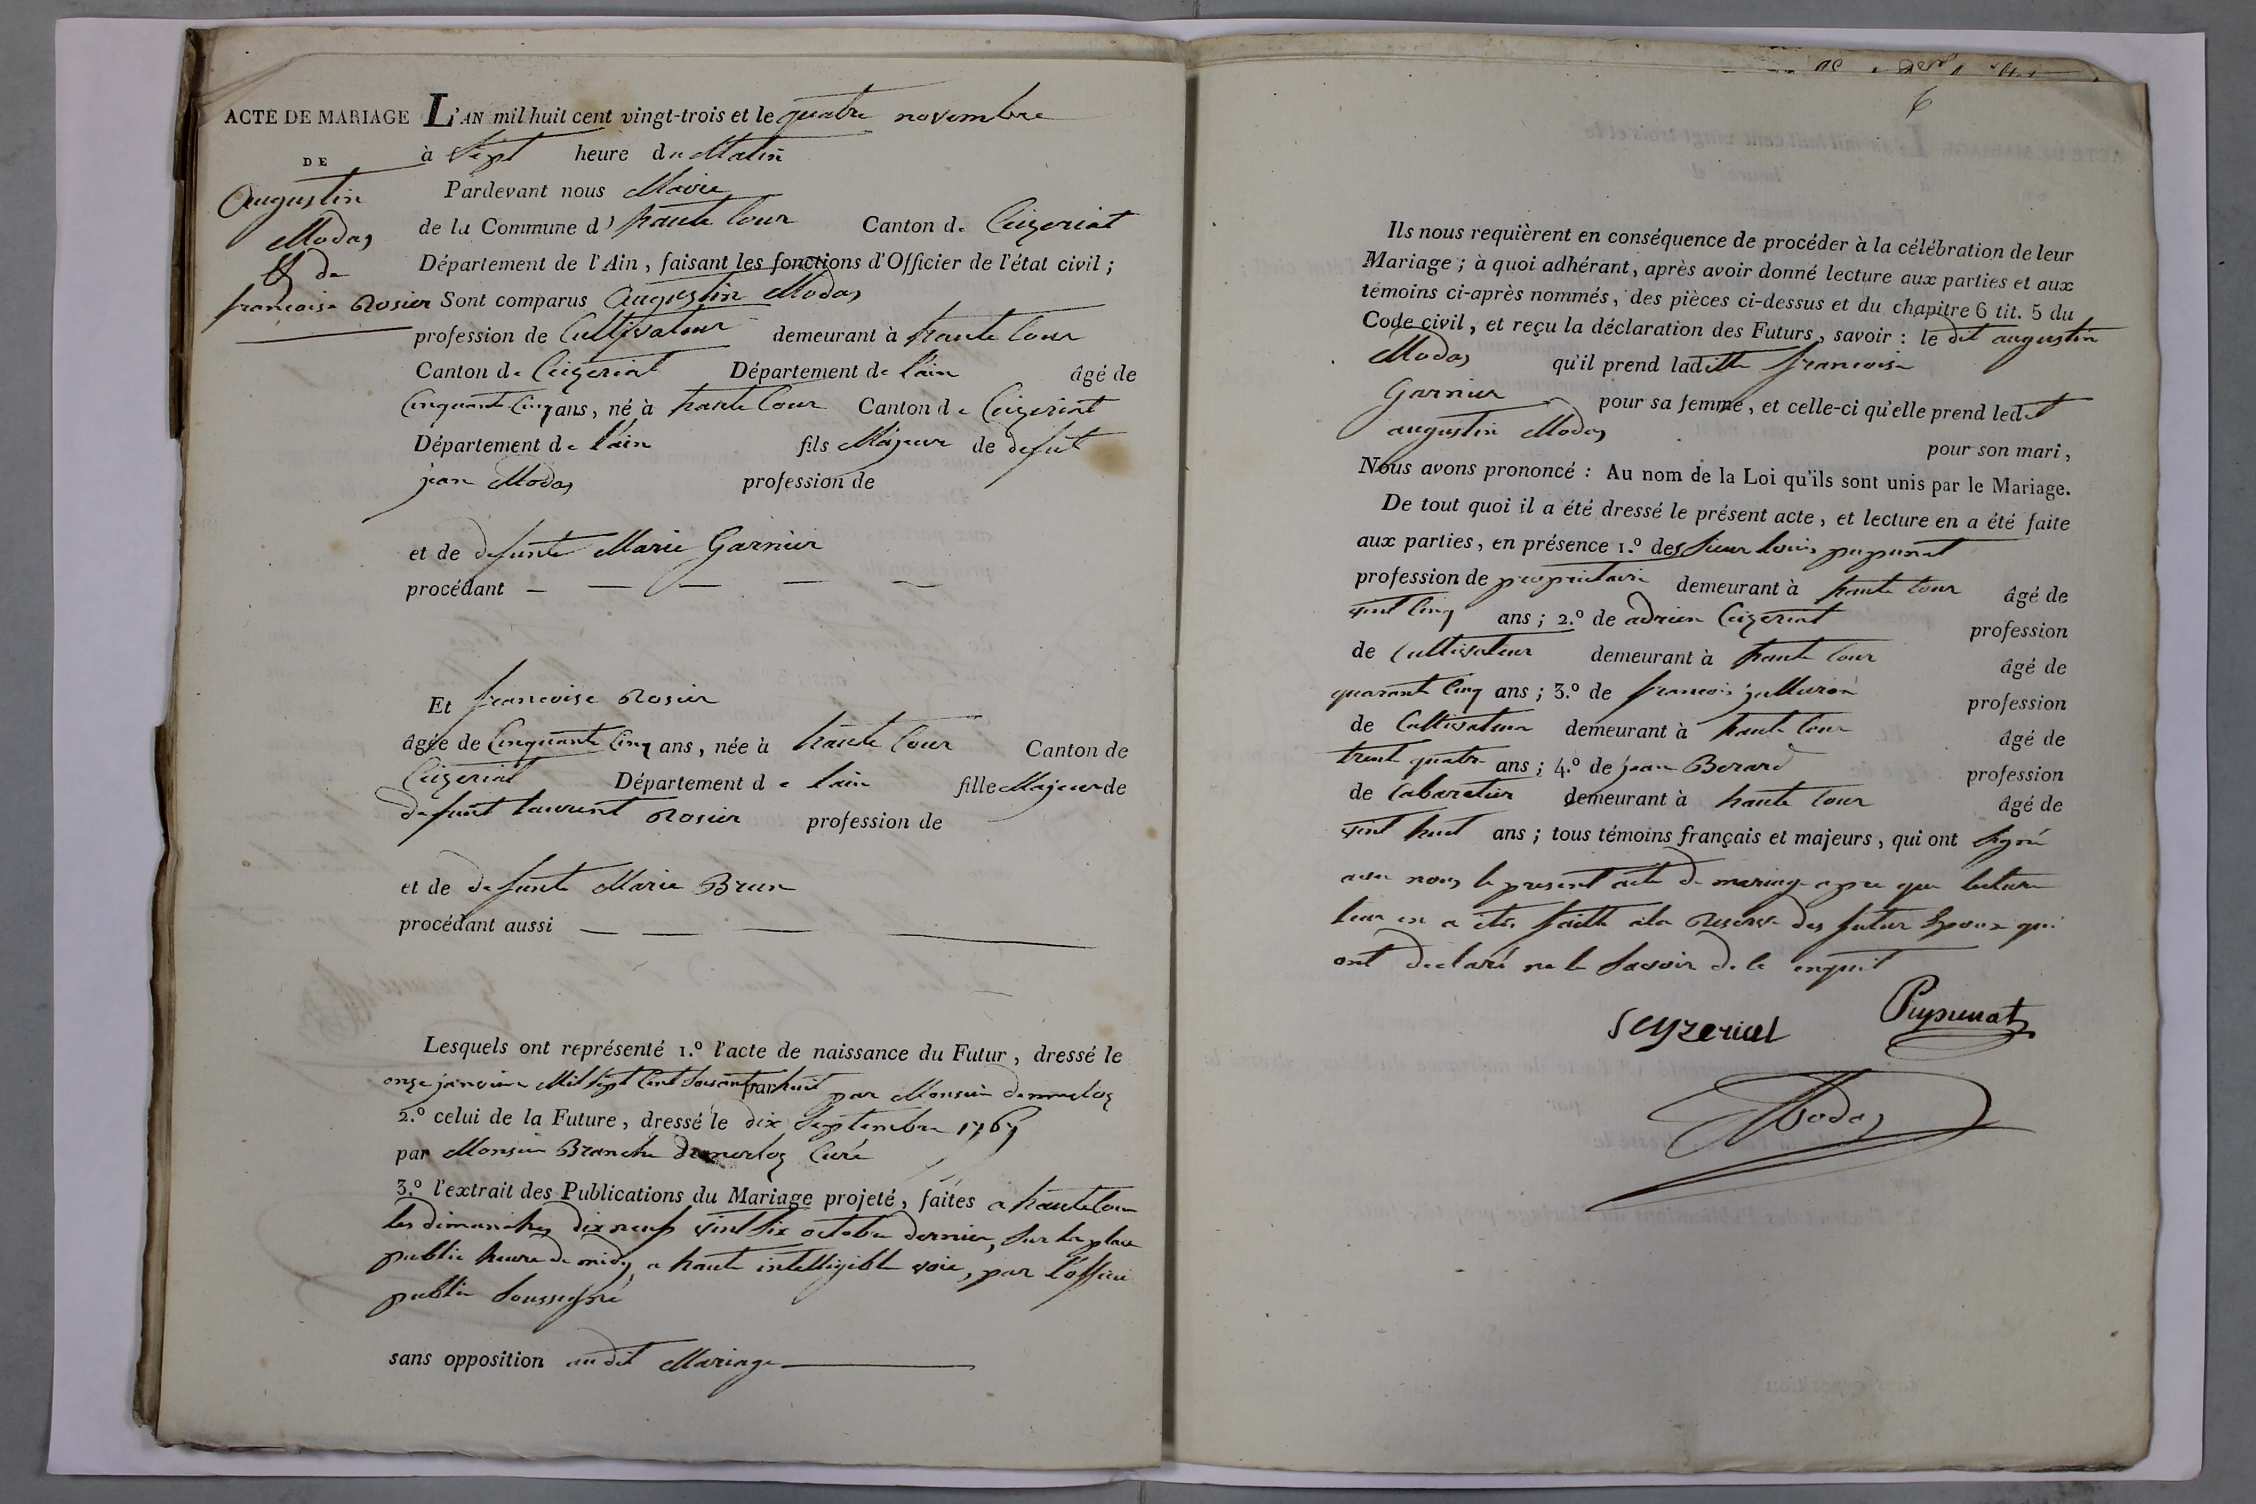 ACTE DE MARIAGE
DE
Augustin
Modas
Et de
francoise Rosier
L'AN mil huit cent vingt-trois et le quatre novembre
à Sept heure du Matin
Pardevant nous Maire
de la Commune d' haute Cour Canton de Ceizeriat
Département de l'Ain, faisant les fonctions d'Officier de l'état civil;
Sont comparus Augustin Modas
profession de Cultivateur demeurant à haute Cour
Canton de Ceizeriat Département de l'ain âgé de
Cinquante Cinq ans, né à haute Cour Canton de Ceizeriat
Département de l'ain fils Majeur de defut
jean Modas profession de
et de defunte Marie Garnier
procédant
Et francoise Rosier
âgée de Cinquante Cinq ans, née à haute Cour Canton de
Ceizeriat Département de l'ain fille Majeur de
defunt laurent Rosier profession de
et de defunte Marie Brun
procédant aussi
Lesquels ont représenté 1.º l'acte de naissance du Futur, dressé le
onze janvier Mil Sept Cent Soisante huit par par Monsieur
2.º celui de la Future, dressé le dix Septembre 1767
par Monsieur Branche Curé
3.º l'extrait des Publications du Mariage projeté, faites a haute Cour
les dimanches dix neuf vint Six octobre dernier, Sur la place
public heure de midy, a haute intelligible voie, par l'officié
public Soussigné
sans opposition au dit Mariage
6
Ils nous requièrent en conséquence de procéder à la célébration de leur
Mariage; à quoi adhérant, après avoir donné lecture aux parties et aux
témoins ci-après nommés, des pièces ci-dessus et du chapitre 6 tit. 5 du
Code civil, et reçu la déclaration des Futurs, savoir: le dit augustin
Modas qu'il prend laditte francoise
Garnier pour sa femme, et celle-ci qu'elle prend ledit
augustin Modas pour son mari,
Nous avons prononcé: Au nom de la Loi qu'ils sont unis par le Mariage.
De tout quoi il a été dressé le présent acte, et lecture en a été faite
aux parties, en présence 1.º des Sieur louis pupunat
profession de propriétaire demeurant à haute Cour âgé de
vint Cinq ans; 2.º de adrien Ceizeriat profession
de Cultivateur demeurant à haute Cour âgé de
quarante Cinq ans; 3.º de francois profession
de Cultivateur demeurant à haute Cour âgé de
trente quatre ans; 4.º de jean Berard profession
de Cabaretier demeurant à haute Cour âgé de
vint huit ans; tous témoins français et majeurs, qui ont signé
avec nous le present acte de mariage apre que lecture
leur en a étés faitte a la Reserve des futur Epoux qui
ont declaré ne le Savoir de ce enquit
Seyzeriat Pupunat
Modas